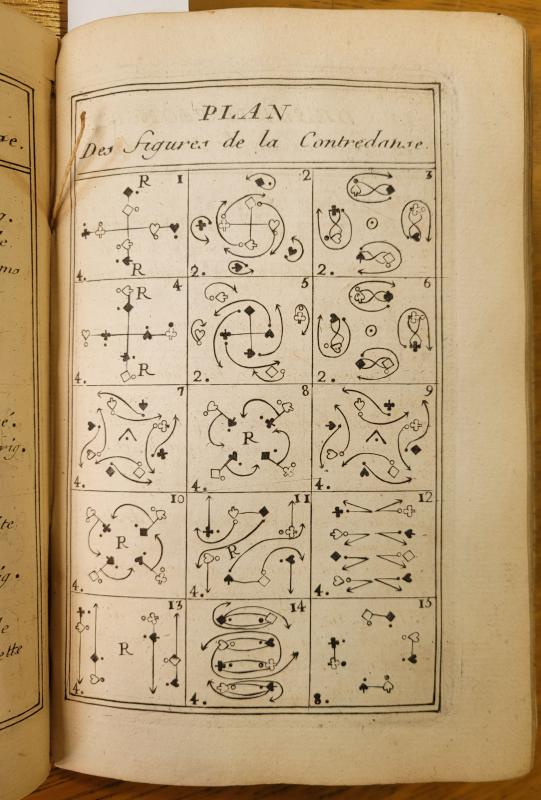 PLAN
Des figures de la Contredanse.
R 1 2 3
4. R 2. 2.
R 4 5 6
4. R 2. 2.
7 8 9
R
4. 4. 4.
10 11 12
R R
4. 4. 4.
13 14 15
R
4. 4. 8.
é.
rig.
te
g.
le
ette